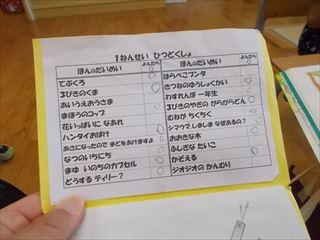 1ねんせい ひつどくしょ
ほんのだいめい よんだら
てぶくろ
3びきのくま
あいうえおうさま
まほうのコップ
花いっぱいに なあれ
ハンタイおばけ
あさになったので まどをあけますよ
なつのいちにち
まゆ いのちのカプセル
どうする ティリー？
ほんのだいめい よんだら
はらぺこブンタ
きつねのゆうしょくかい
わすれんぼ 一年生
3びきのやぎの がらがらどん
むねが ちくちく
シマウマ しましま なぜあるの？
おおきな木
ふしぎな たいこ
かぞえる
ジオジオの かんむり